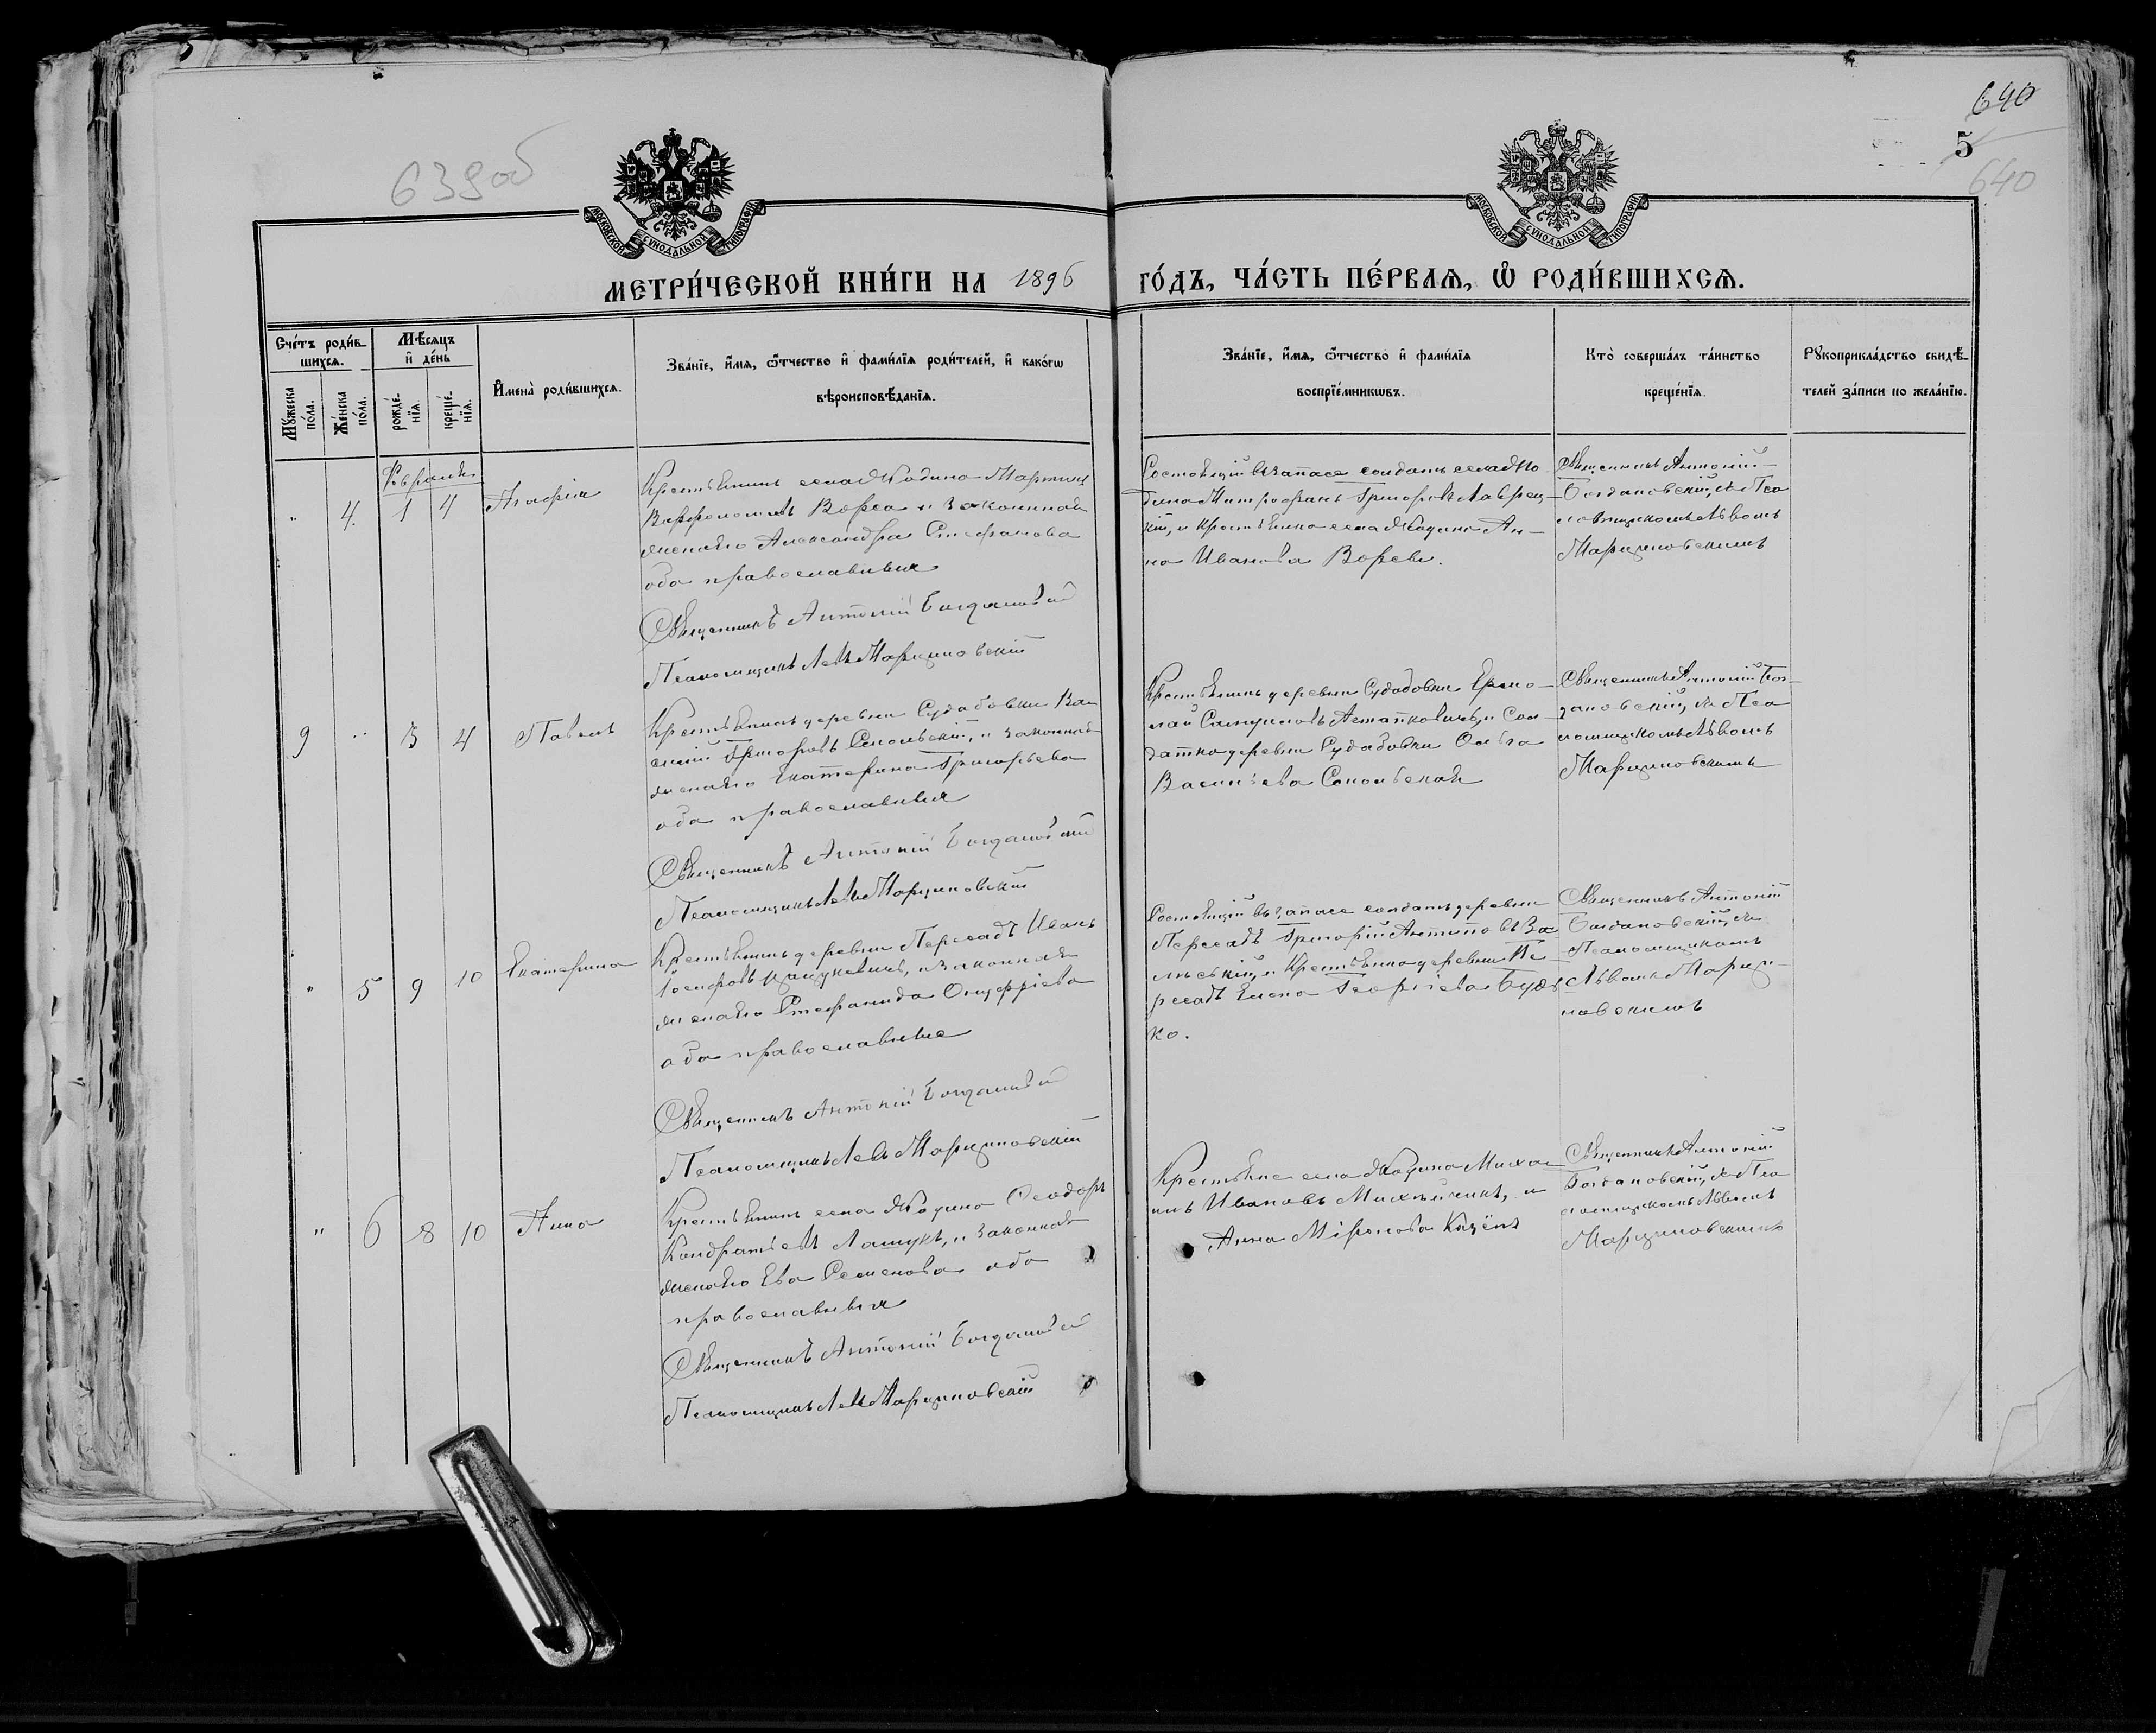 640
5
640
639об
МОСКОВСКОЙ СѴНОДАЛЬНОЙ ТИПОГРАФІИ
МОСКОВСКОЙ СѴНОДАЛЬНОЙ ТИПОГРАФІИ
МЕТРИ́ЧЕСКОЙ КНИ́ГИ НА 1896 ГО́ДЪ, ЧА́СТЬ ПЕ́РВАѦ, Ѽ РОДИ́ВШИХСѦ.
Сче́тъ роди́в-
шихсѧ.
Мꙋ́жеска
по́ла.
Же́нска
по́ла.
Мѣ́сѧцъ
и҆ де́нь
рожде́-
нїѧ.
креще́-
нїѧ.
И҆мена̀ роди́вшихсѧ.
Зва́нїе, и҆́мѧ, ѻ҆́тчество и҆ фами́лїѧ роди́телей, и҆ како́гѡ
вѣроисповѣ́данїѧ.
Зва́нїе, и҆́мѧ, ѻ҆́тчество и҆ фами́лїѧ
воспрїе́мникѡвъ.
Кто̀ соверша́лъ та́инство
креще́нїѧ.
Рꙋкоприкла́дство свидѣ́-
телей за́писи по жела́нїю.
Февраля
" 4. 1 4 Агафія
Крестьянинъ села Жодина Мартинъ
Варфоломеевъ Ворса и законная
жена его Александра Стефанова
оба православныя
Священникъ Антоній Богдановскій
Псаломщикъ Левъ Марциновскій
Состоящій въ запасе солдатъ села Жо-
дина Митрофанъ Григорьевъ
и крестьянка села Жодина Ан-
на Иванова
Священникъ Антоній
Богдановскій, съ Пса
ломщикомъ Львомъ
Марциновскимъ
9 " 3 4 Павелъ
Крестьянинъ деревни Судобовки Ва-
силій Григоровъ Сокольскій, и законная
жена его Екатерина Григорьева
оба православныя
Священникъ Антоній Богдановскій
Псаломщикъ Левъ Марциновскій
Крестьянинъ деревни Судобовки Ермо-
лай и Сол-
датка деревни Судобовки Ольга
Васильева Сокольская
Священникъ Антоній Бог-
дановскій, съ Пса
ломщикомъ Львомъ
Марциновскимъ
" 5 9 10 Екатерина
Крестьянинъ деревни Пересадъ Иванъ
Іосифовъ и законная
жена его Стефанида Онуфріева
оба православные
Священникъ Антоній Богдановскій
Псаломщикъ Левъ Марциновскій
Состоящій въ запасе солдатъ деревни
Пересадъ Григорій Антоновъ
и Крестьянка деревни Пе
ресадъ Елена Георгіева Будь
ко.
Священникъ Антоній
Богдановскій, съ
Псаломщикомъ
Львомъ Марци-
новскимъ
" 6 8 10 Анна
Крестьянинъ села Жодина Ѳеодоръ
Кондратьевъ Лашукъ, и законная
жена его Ева Семенова оба
православныя
Священникъ Антоній Богдановскій
Псаломщикъ Левъ Марциновскій
Крестьяне села Жодина Миха
илъ Ивановъ и
Анна Міронова
Священникъ Антоній
Богдановскій, съ Пса
ломщикомъ Львомъ
Марциновскимъ